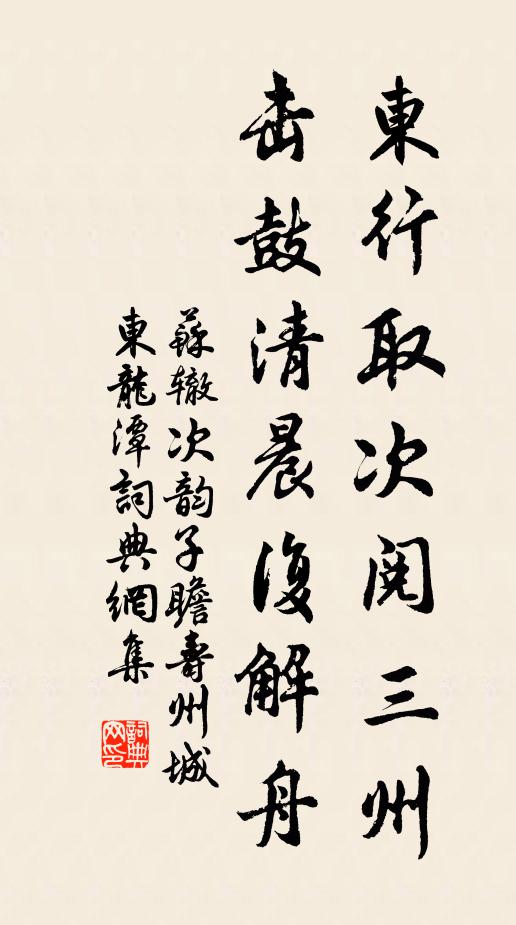 東行取次閱三州
击鼓清晨復解舟
蘇辙次韵子瞻壽州城
東龍潭詞典網集
詞典
网印